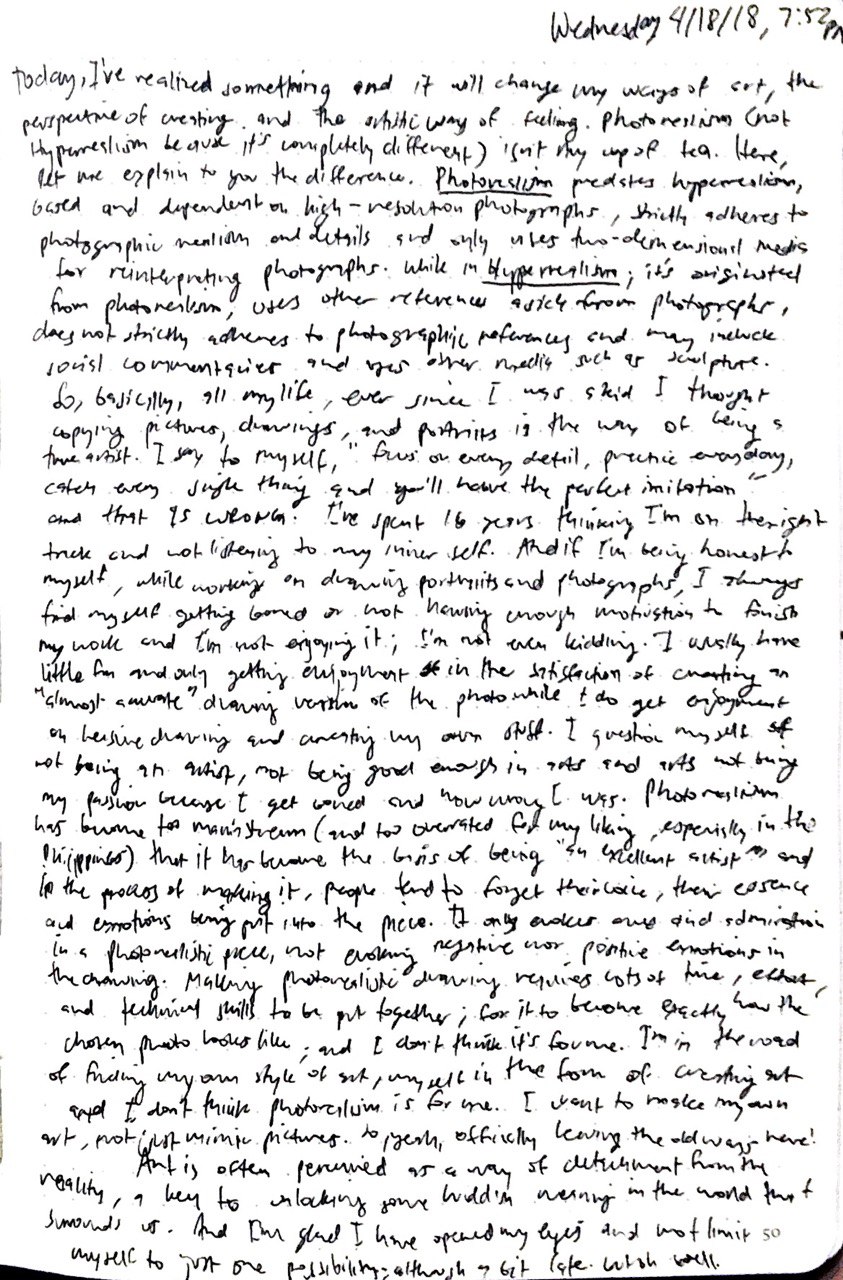 Wednesday 4/18/18, 7:52 PM
Today, I've realized something and it will change my ways of art, the
perspective of creating and the artistic way of feeling. Photorealism (not
Hyperrealism because it's completely different) isn't my cup of tea. Here,
let me explain to you the difference. Photorealism predates hyperrealism,
based and dependent on high-resolution photographs, strictly adheres to
photographic realism and details and only uses two-dimensional media
for reinterpreting photographs. While in Hyperrealism; it's originated
from photorealism, uses other references aside from photographs,
does not strictly adheres to photographic references and may include
social commentaries and uses other media such as sculpture.
So, basically, all my life, ever since I was a kid I thought
copying pictures, drawings, and portraits is the way of being a
true artist. I say to myself, "focus on every detail, practice everyday,
catch every single thing and you'll have the perfect imitation"
and that is wrong. I've spent 16 years thinking I'm on the right
track and not listening to my inner self. And if I'm being honest to
myself, while working on drawing portraits and photographs, I always
find myself getting bored or not having enough motivation to finish
my work and I'm not enjoying it; I'm not even kidding. I usually have
little fun and only getting enjoyment in the satisfaction of creating an
"almost accurate" drawing version of the photo while I do get enjoyment
on leisure drawing and creating my own stuff. I question myself of
not being an artist, not being good enough in arts and arts not being
my passion because I get bored and how wrong I was. Photorealism
has become too mainstream (and too overrated for my liking, especially in the
Philippines) that it has become the basis of being "an excellent artist" and
in the process of making it, people tend to forget their voice, their essence
and emotions being put into the piece. It only evokes awe and admiration
in a photorealistic piece, not evoking negative nor positive emotions in
the drawing. Making photorealistic drawing requires lots of time, effort,
and technical skills to be put together; for it to become exactly how the
chosen photo looks like; and I don't think it's for me. I'm in the road
of finding my own style of art, myself in the form of creating art
and I don't think photorealism is for me. I want to make my own
art, not just mimic pictures. So yeah, officially leaving the old ways here!
Art is often perceived as a way of detachment from the
reality, a key to unlocking some hidden meaning in the world that
surrounds us. And I'm glad I have opened my eyes and not limit so
myself to just one possibility; although a bit late. well.